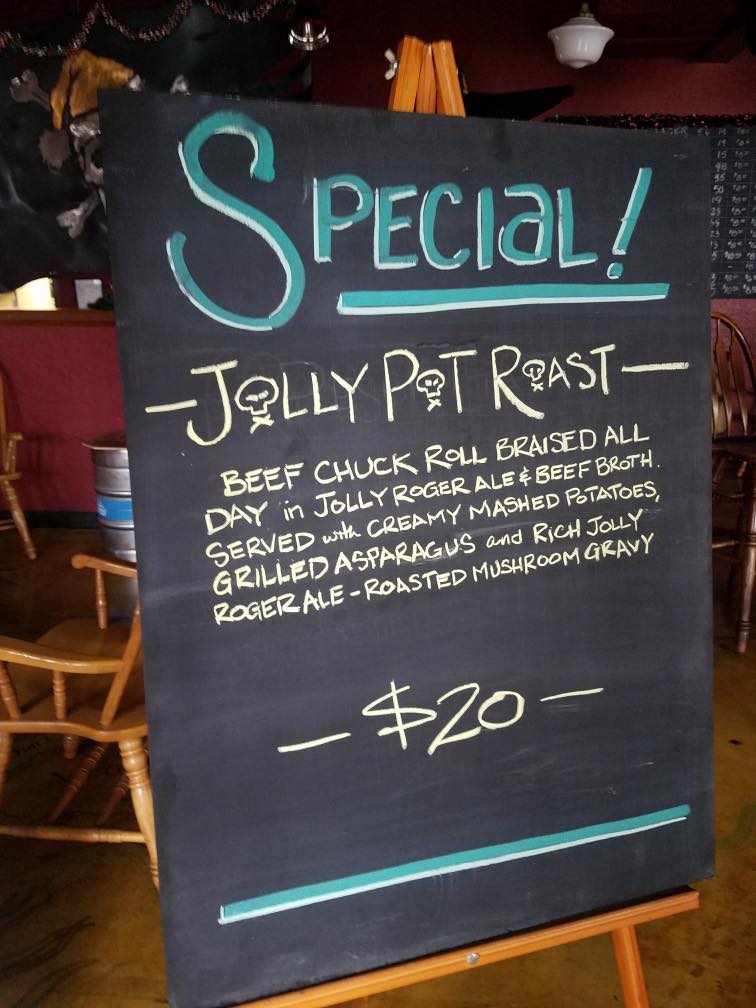 Special!
—JOLLY POT ROAST—
BEEF CHUCK ROLL BRAISED ALL
DAY in JOLLY ROGER ALE & BEEF BROTH.
SERVED with CREAMY MASHED POTATOES,
GRILLED ASPARAGUS and RICH JOLLY
ROGER ALE-ROASTED MUSHROOM GRAVY
— $20 —